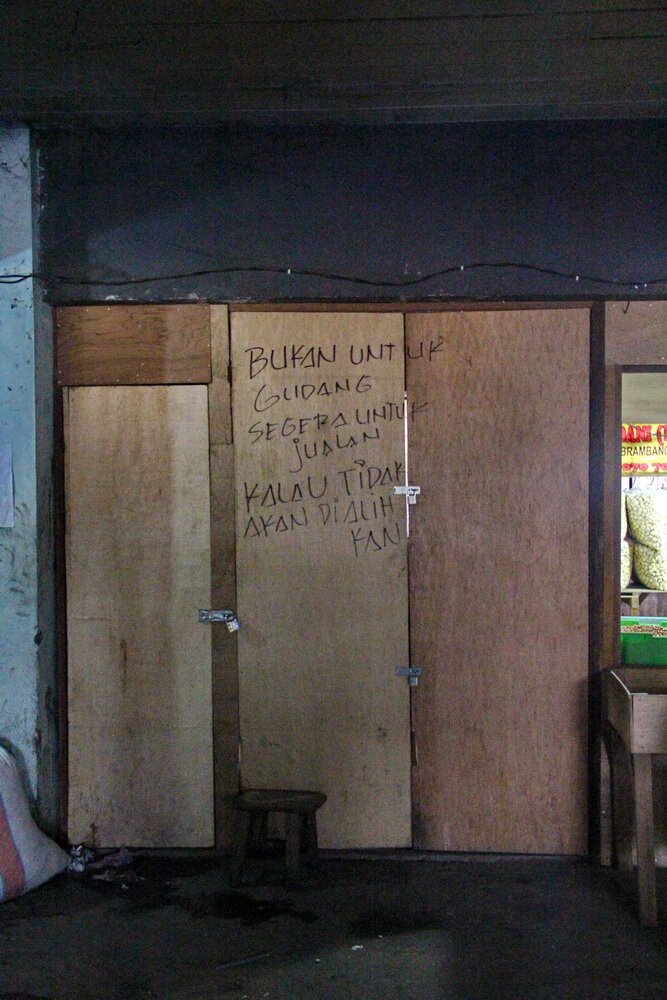 BUKAN UNTUK
GUDANG
SEGERA UNTUK
JUALAN
KALAU TIDAK
AKAN DIALIH
KAN
BRAMBANG